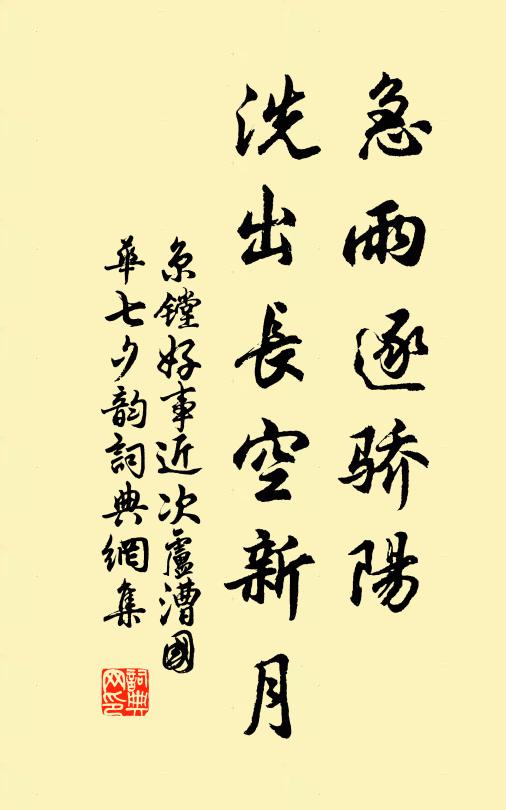 急雨逐骄陽
洗出長空新月
京镗好事近次盧漕國
華七夕韵詞典網集
詞典网印